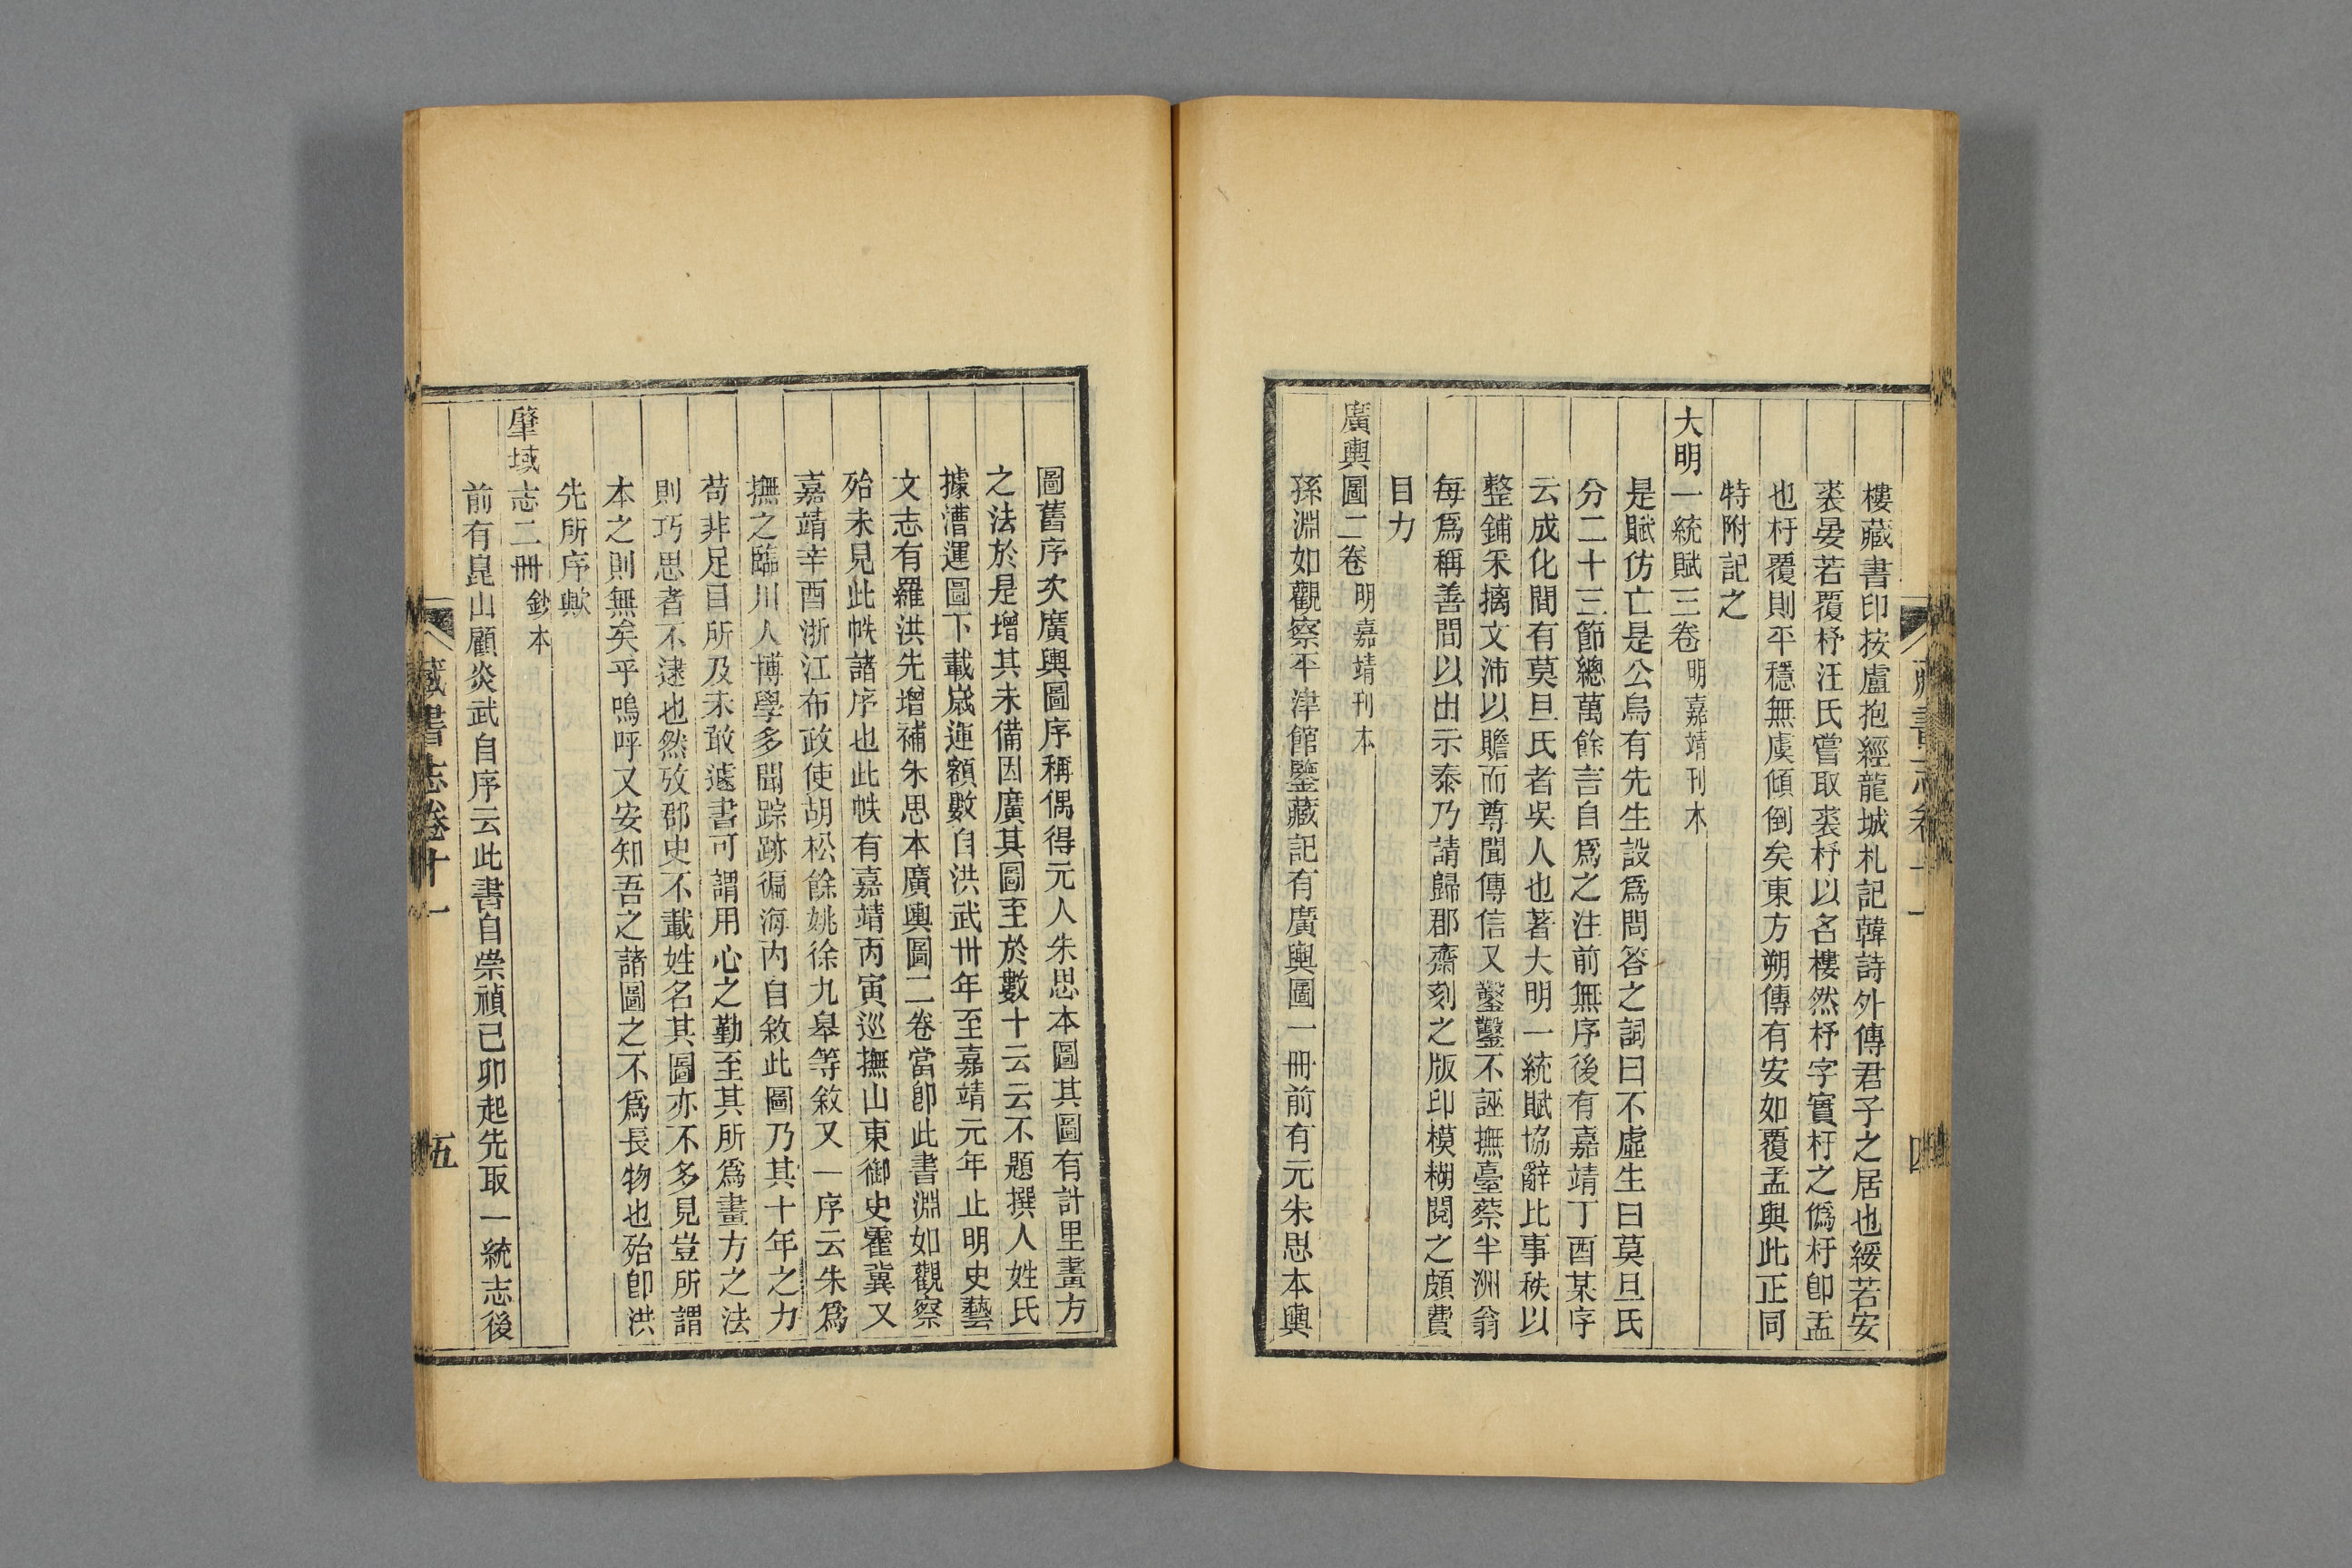 藏書志卷十一
四
樓藏書印按盧抱經龍城札記韓詩外傳君子之居也綏若安
裘晏若覆杼汪氏嘗取裘杼以名樓然杼字實杅之僞杅卽盂
也杅覆則平穩無虞傾倒矣東方朔傳有安如覆盂與此正同
特附記之
大明一統賦三卷 明嘉靖刊本
是賦仿亡是公烏有先生設爲問答之詞曰不虛生曰莫旦氏
分二十三節總萬餘言自爲之注前無序後有嘉靖丁酉某序
云成化間有莫旦氏者吳人也著大明一統賦協辭比事秩以
整鋪釆摛文沛以贍而尊聞傳信又鑿鑿不誣撫臺蔡半洲翁
每爲稱善問以出示泰乃請歸郡齋刻之版印模糊閱之頗費
目力
廣輿圖二卷 明嘉靖刊本
孫淵如觀察平津館鑒藏記有廣輿圖一冊前有元朱思本輿
圖舊序次廣輿圖序稱偶得元人朱思本圖其圖有計里畫方
之法於是增其未備因廣其圖至於數十云云不題撰人姓氏
據漕運圖下載歲運額數自洪武卅年至嘉靖元年止明史藝
文志有羅洪先增補朱思本廣輿圖二卷當卽此書淵如觀察
殆未見此帙諸序也此帙有嘉靖丙寅巡撫山東御史霍冀又
嘉靖辛酉浙江布政使胡松餘姚徐九皋等敘又一序云朱爲
撫之臨川人博學多聞踪跡徧海內自敘此圖乃其十年之力
苟非足目所及未敢遽書可謂用心之勤至其所爲畫方之法
則巧思者不逮也然攷郡史不載姓名其圖亦不多見豈所謂
本之則無矣乎嗚呼又安知吾之諸圖之不爲長物也殆卽洪
先所序歟
肇域志二冊 鈔本
前有崑山顧炎武自序云此書自崇禎己卯起先取一統志後
藏書志卷十一
五